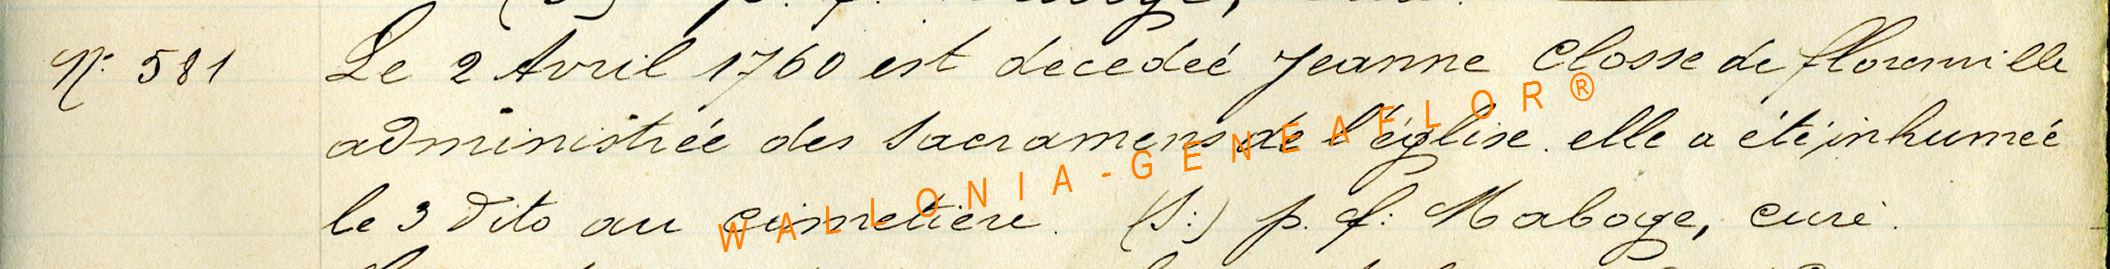 N° 581 Le 2 Avril 1760 est decedeé Jeanne Closse de florenville
administrée des Sacramens de l'église. elle a été inhumeé
le 3 dito au cimetiere. (S:) p. f: Maboge, curé.
WALLONIA-GENEAFLOR®